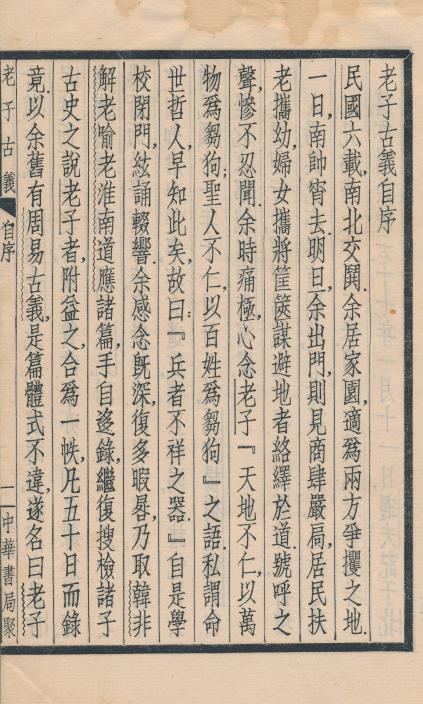 老子古義自序
民國六載，南北交閧．余居家園，適爲兩方爭攫之地．
一日，南帥宵去．明旦，余出門，則見商肆嚴扃，居民扶
老攜幼，婦女攜將筐篋謀避地者絡繹於道，號呼之
聲，慘不忍聞．余時痛極，心念老子『天地不仁，以萬
物爲芻狗；聖人不仁，以百姓爲芻狗』之語，私謂命
世哲人，早知此矣，故曰：『兵者不祥之器．』自是學
校閉門，絃誦輟響．余感念旣深，復多暇晷，乃取韓非
解老喻老淮南道應諸篇，手自迻錄，繼復搜檢諸子
古史之說老子者，附益之，合爲一帙，凡五十日而錄
竟．以余舊有周易古義，是篇體式不違，遂名曰老子
老子古義
自序
一
中華書局聚